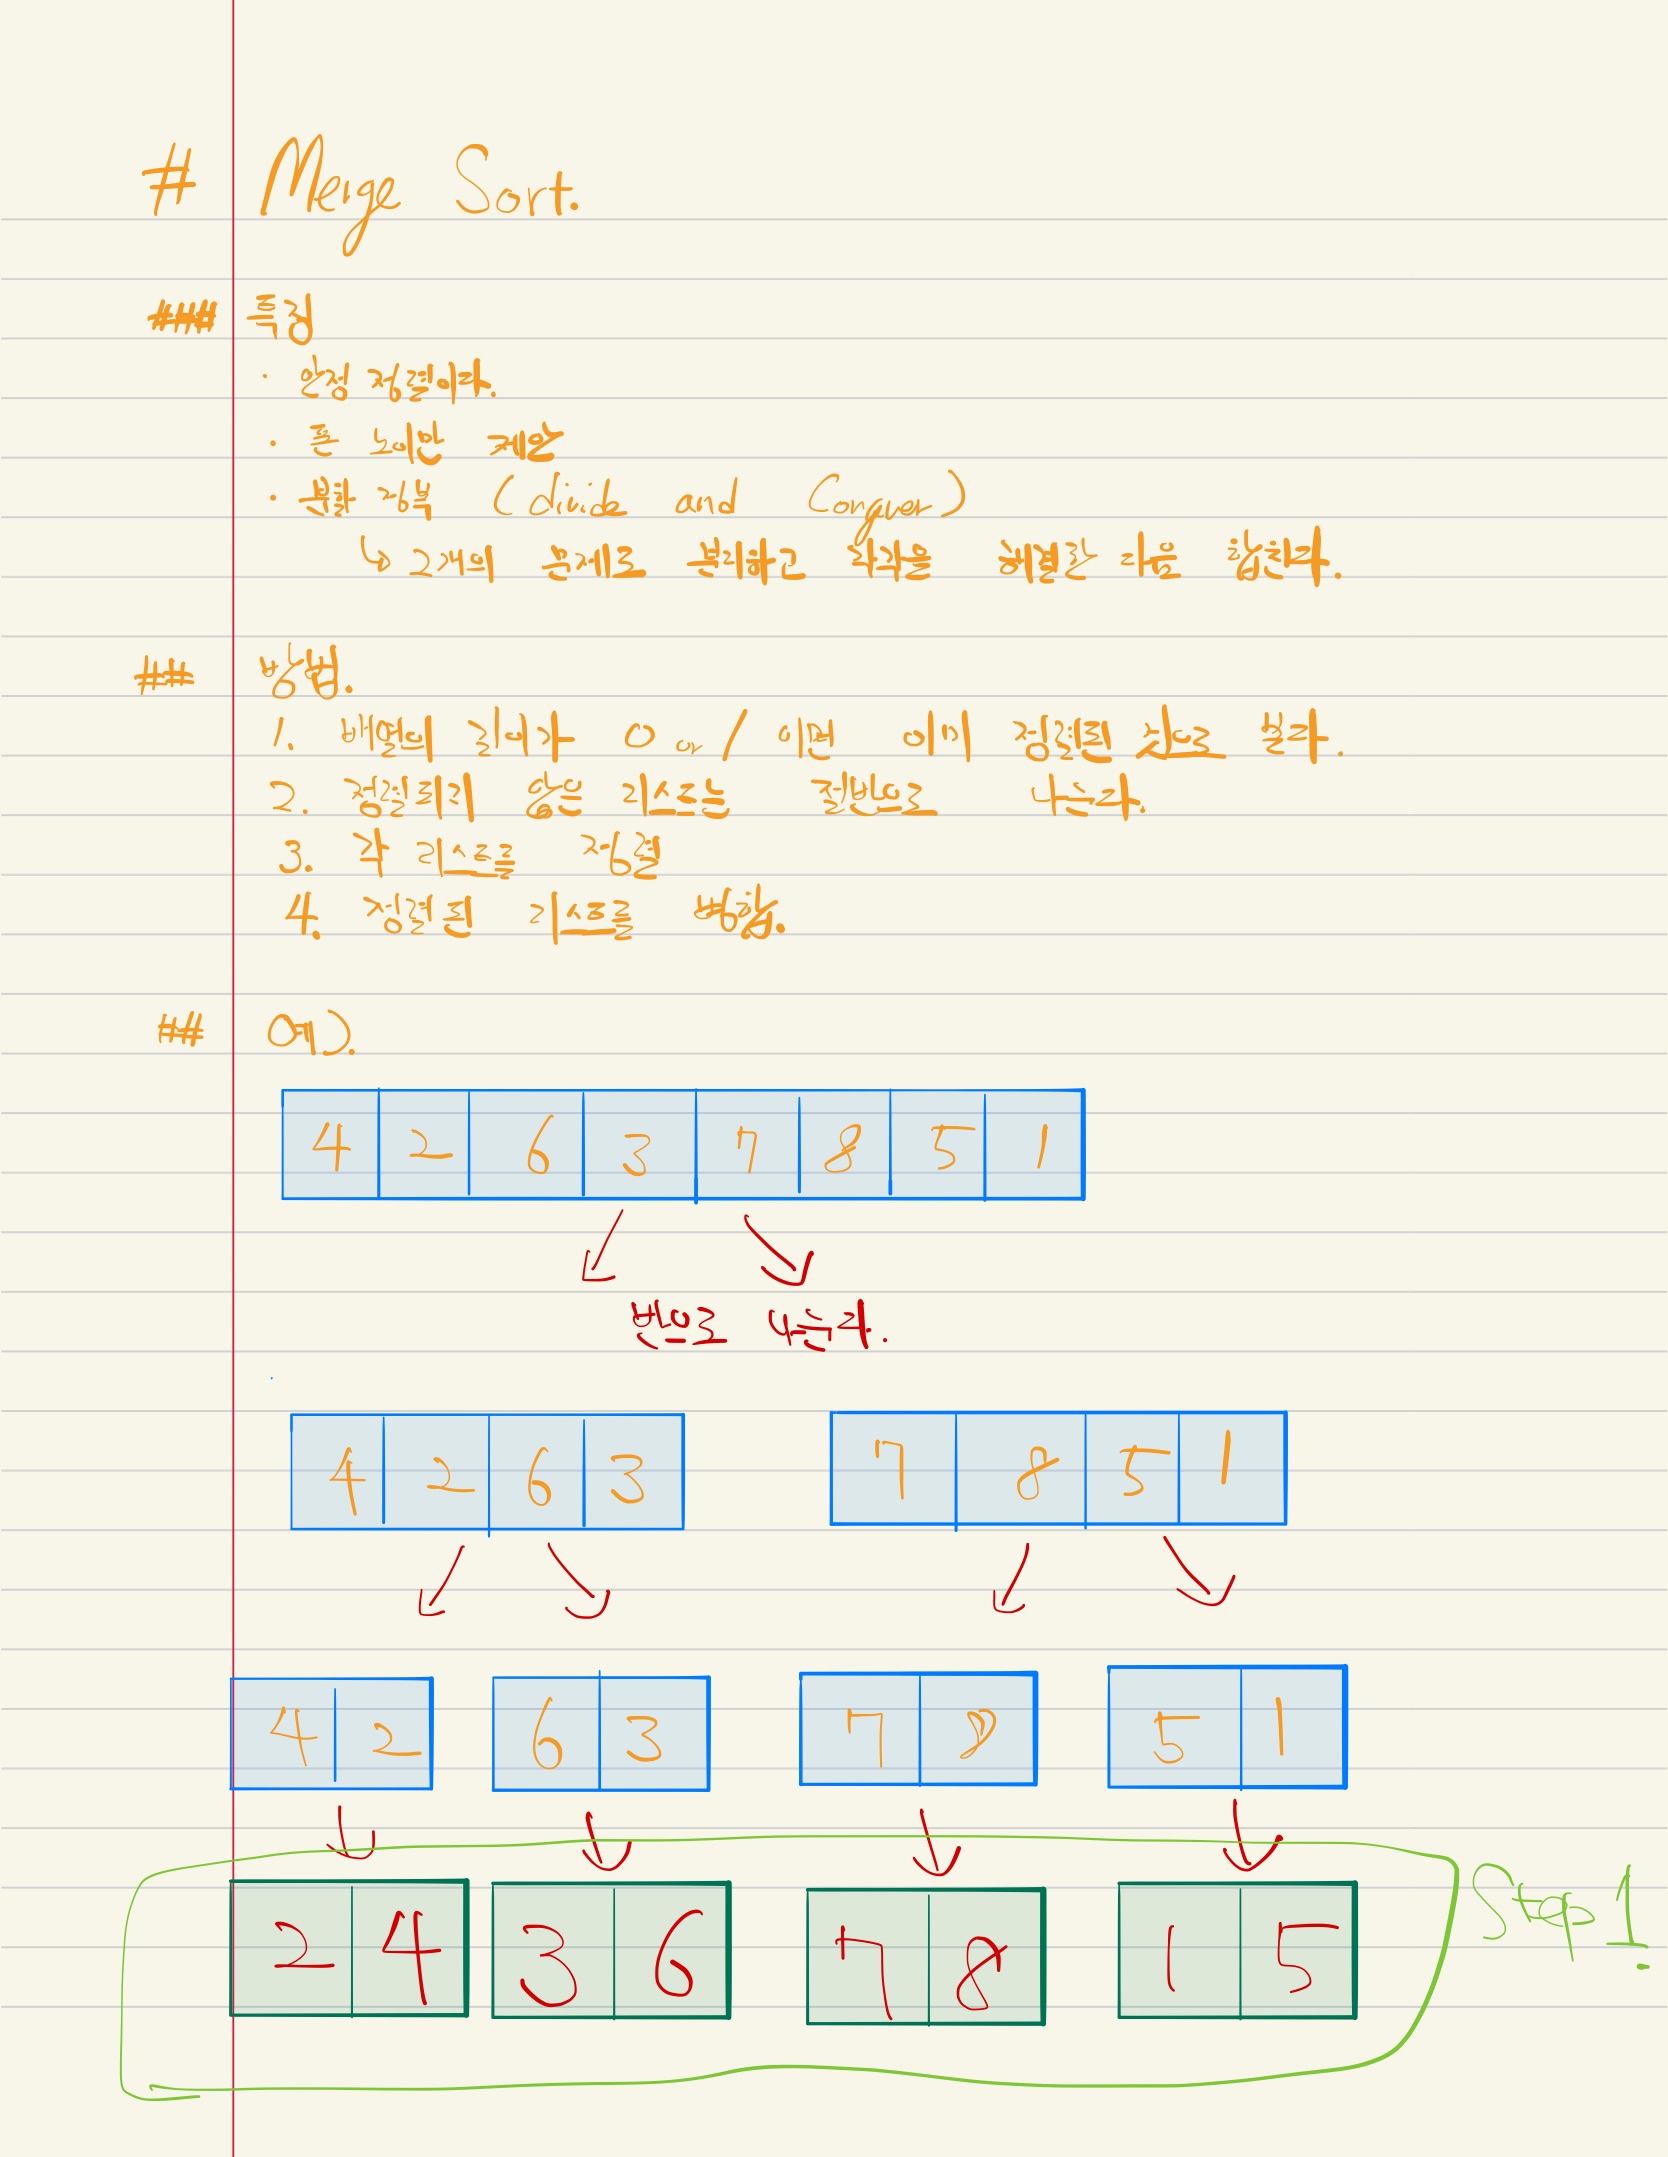 # Merge Sort.
### 특징
· 안정 정렬이다.
· 폰 노이만 제안
· 분할 정복 (divide and Conquer)
↳ 2개의 문제로 분리하고 각각을 해결한 다음 합친다.
## 방법.
1. 배열의 길이가 0 or 1 이면 이미 정렬된 것으로 본다.
2. 정렬되지 않은 리스트는 절반으로 나눈다.
3. 각 리스트를 정렬
4. 정렬된 리스트를 병합.
## 예).
4 2 6 3 7 8 5 1
반으로 나눈다.
4 2 6 3 7 8 5 1
4 2 6 3 7 8 5 1
2 4 3 6 7 8 1 5 Step 1.